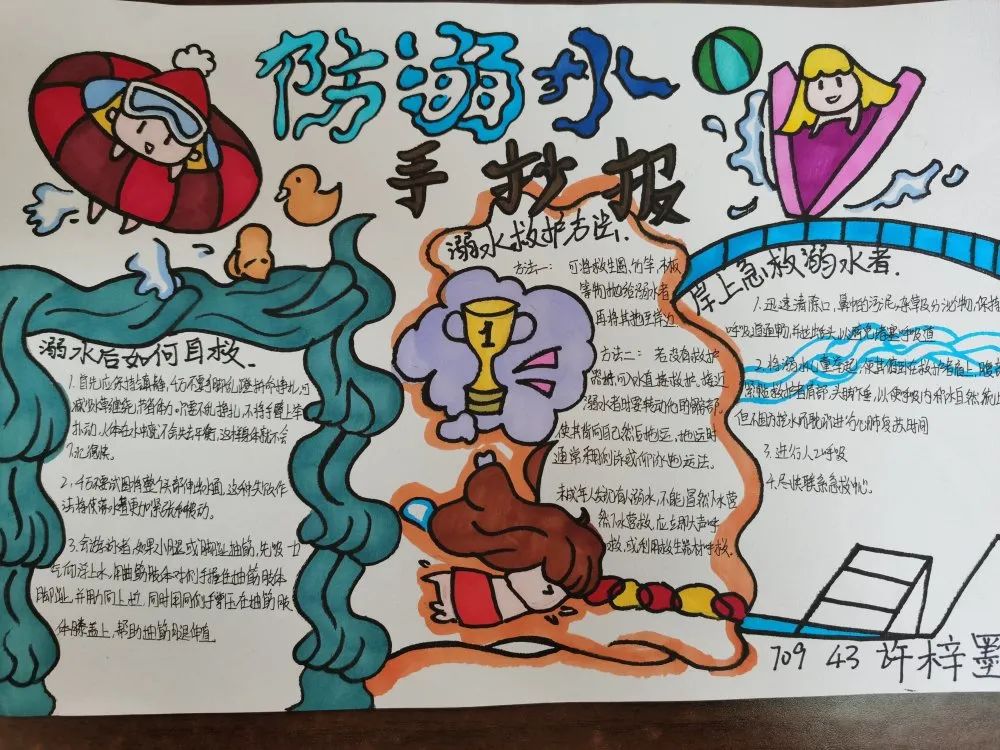 防溺水
手抄报
溺水后如何自救.
1.首先应保持镇静,千万不要手脚乱蹬拼命挣扎,可
减少水草缠绕,节省体力。只要不乱挣扎,不将手臂上举
扑动,人体在水中就不会失去平衡,这样身体就不会
下沉得快。
2.千万不要试图将整个头部伸出水面,这种
法将使落水者更加紧张和被动。
3.会游泳者,如果小腿或脚趾抽筋,先吸一口
气仰浮上水,用抽筋肢体对侧手握住抽筋肢体
脚趾,并用力向上拉,同时用同侧手掌压在抽筋肢
体膝盖上,帮助抽筋腿伸直
溺水救护方法.
方法一: 可将救生圈、竹竿、木板
等物抛给溺水者,
再将其拖至岸边
方法二: 若没有救护
器材,可入水直接救护。接近
溺水者时要转动他的髋部,
使其背向自己然后拖运。拖运时
通常采用侧泳或仰泳拖运法。
未成年人发现有人溺水,不能冒然下水营
然下水营救,应立即大声呼
救,或利用救生器材呼救。
1
岸上急救溺水者.
1.迅速清除口、鼻中的污泥、杂草及分泌物,保持
呼吸道通畅,并拉出舌头,以避免堵塞呼吸道
2.将溺水儿童举起,使其俯卧在救护者肩上,腹部
紧贴救护者肩部,头脚下垂,以使呼吸道内积水自然流出
但不要因为控水而耽误进行心肺复苏时间
3.进行人工呼吸
4.尽快联系急救中心。
709 43 许梓墨